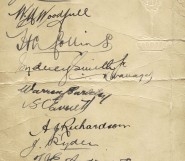 W M Woodfull
H L Collins
Sydney Smith Jr
Manager
Warren Bardsley
A J Richardson
J. Ryder